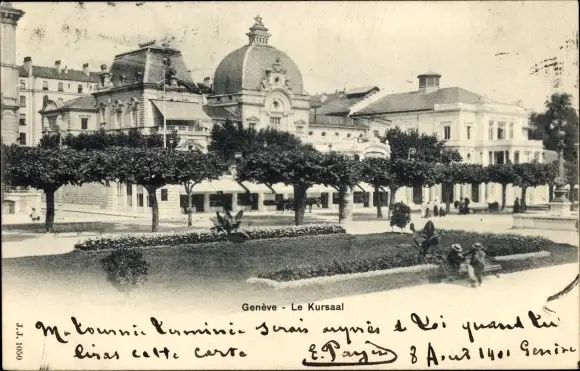 Genève - Le Kursaal
J.J. 1050
Ma tournée terminée serais auprès de toi quand tu
liras cette carte E. Payer 8 Aout 1901 Genève